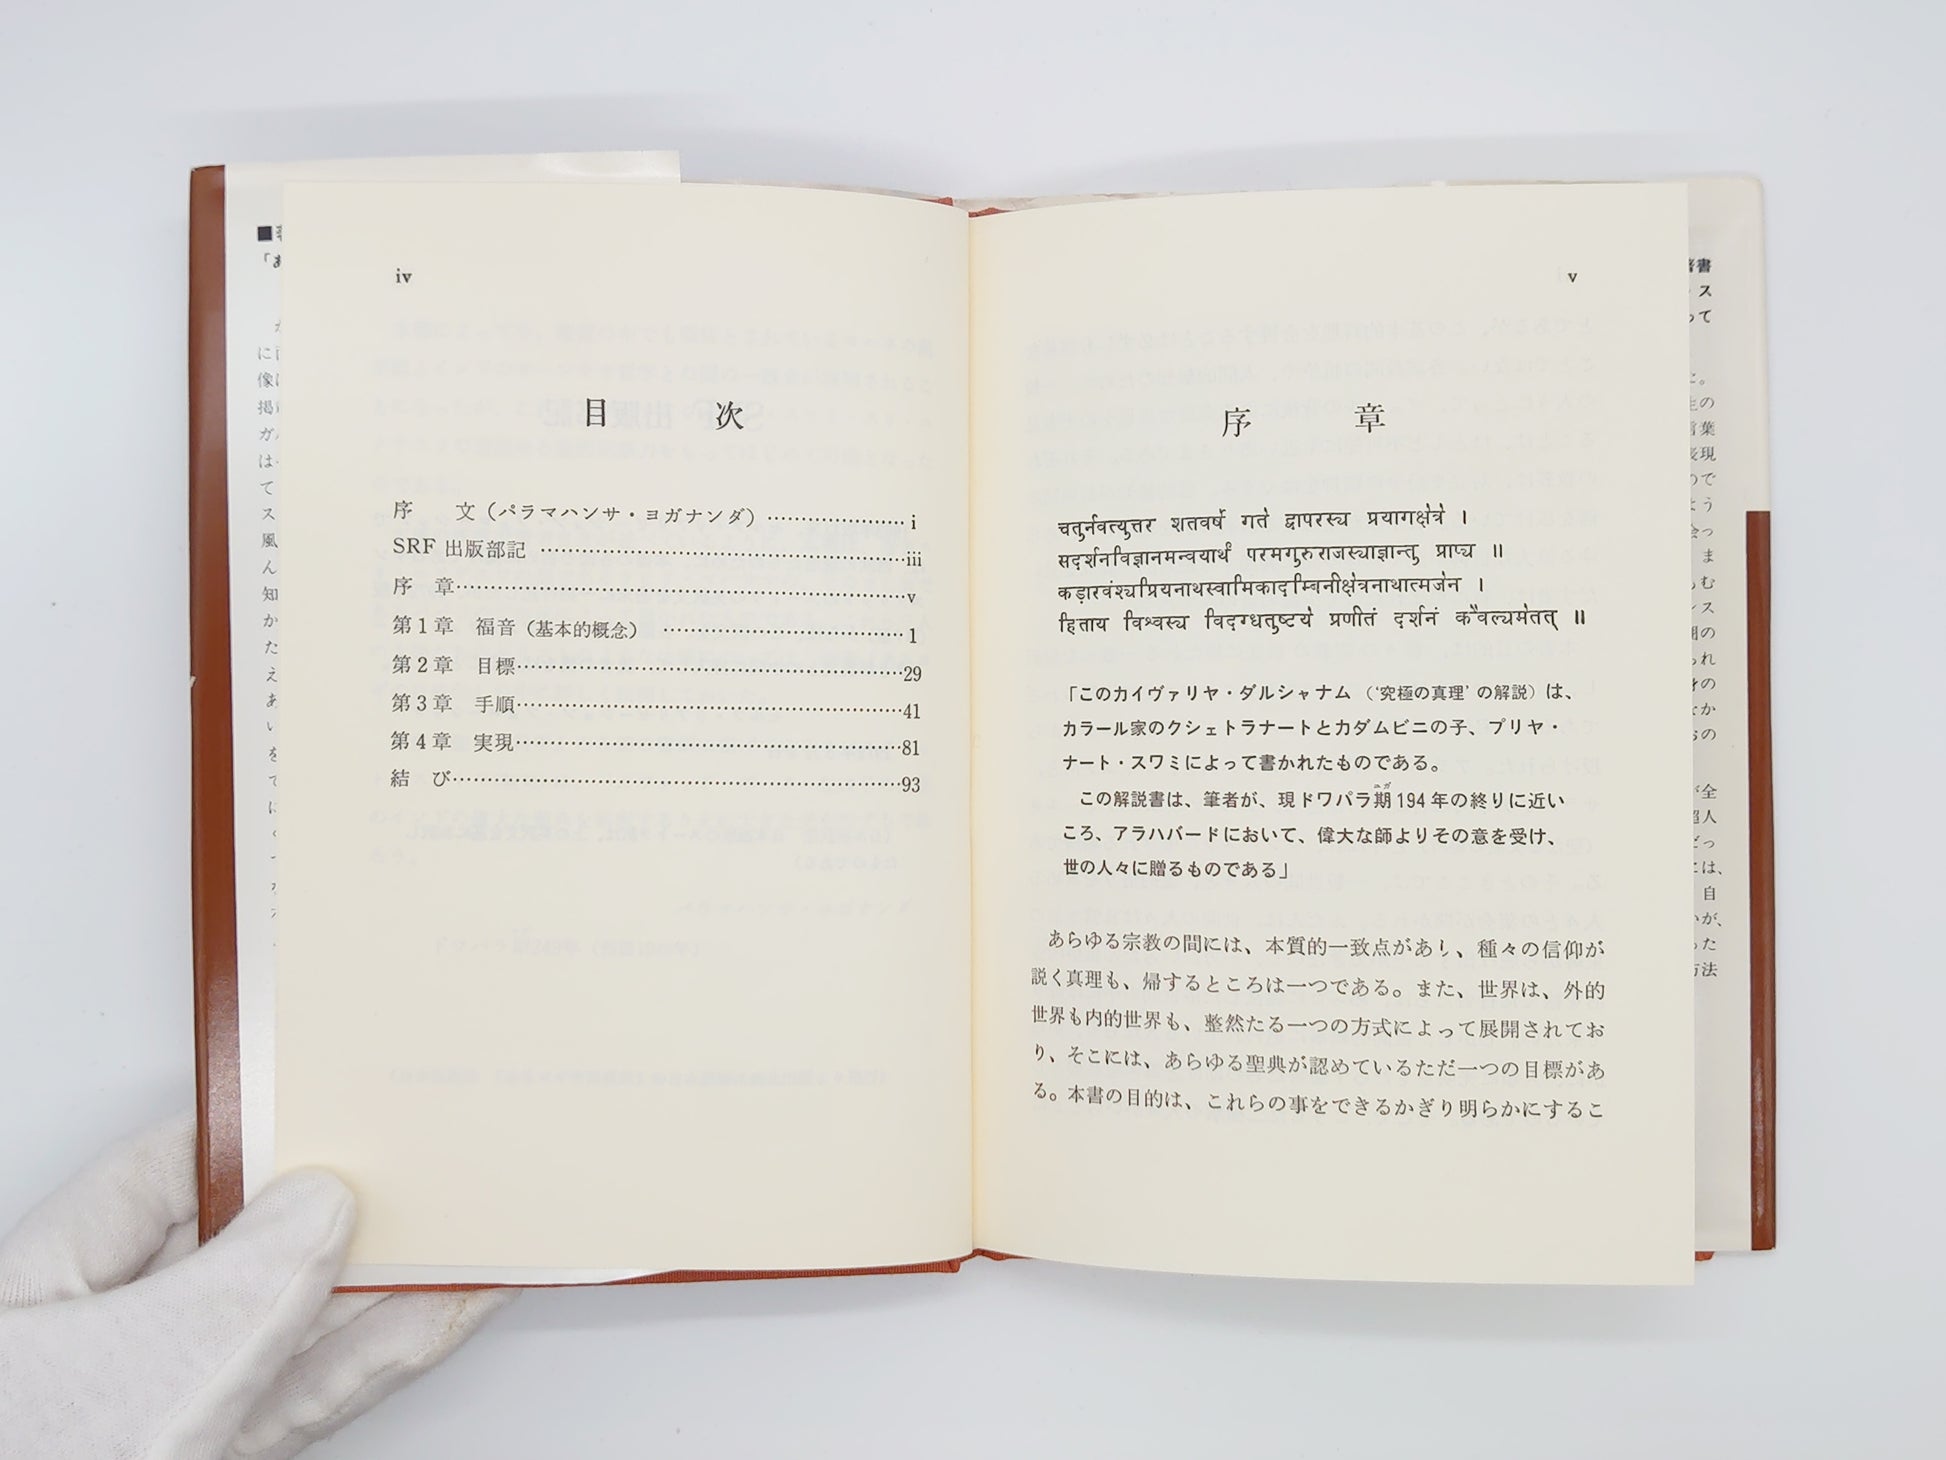 iv
目 次
序 文（パラマハンサ・ヨガナンダ）…………………i
SRF 出版部記 ……………………………………………iii
序 章…………………………………………………………v
第1章 福音（基本的概念） ………………………………1
第2章 目標…………………………………………………29
第3章 手順…………………………………………………41
第4章 実現…………………………………………………81
結 び…………………………………………………………93
v
序 章
चतुर्नवत्युत्तर शतवर्षे गते द्वापरस्य प्रयागक्षेत्रे ।
सदर्शनविज्ञानमन्वयार्थं परमगुरुराजस्याज्ञान्तु प्राप्य ॥
कड़ारवंश्यप्रियनाथस्वामिकादम्बिनीक्षेत्रनाथात्मजेन ।
हिताय विश्वस्य विदग्धतुष्टये प्रणीतं दर्शनं कैवल्यमेतत् ॥
「このカイヴァリヤ・ダルシャナム（‘究極の真理’の解説）は、
カラール家のクシェトラナートとカダムビニの子、プリヤ・
ナート・スワミによって書かれたものである。
この解説書は、筆者が、現ドワパラ期194年の終りに近い
ころ、アラハバードにおいて、偉大な師よりその意を受け、
世の人々に贈るものである」
あらゆる宗教の間には、本質的一致点があり、種々の信仰が
説く真理も、帰するところは一つである。また、世界は、外的
世界も内的世界も、整然たる一つの方式によって展開されてお
り、そこには、あらゆる聖典が認めているただ一つの目標があ
る。本書の目的は、これらの事をできるかぎり明らかにするこ